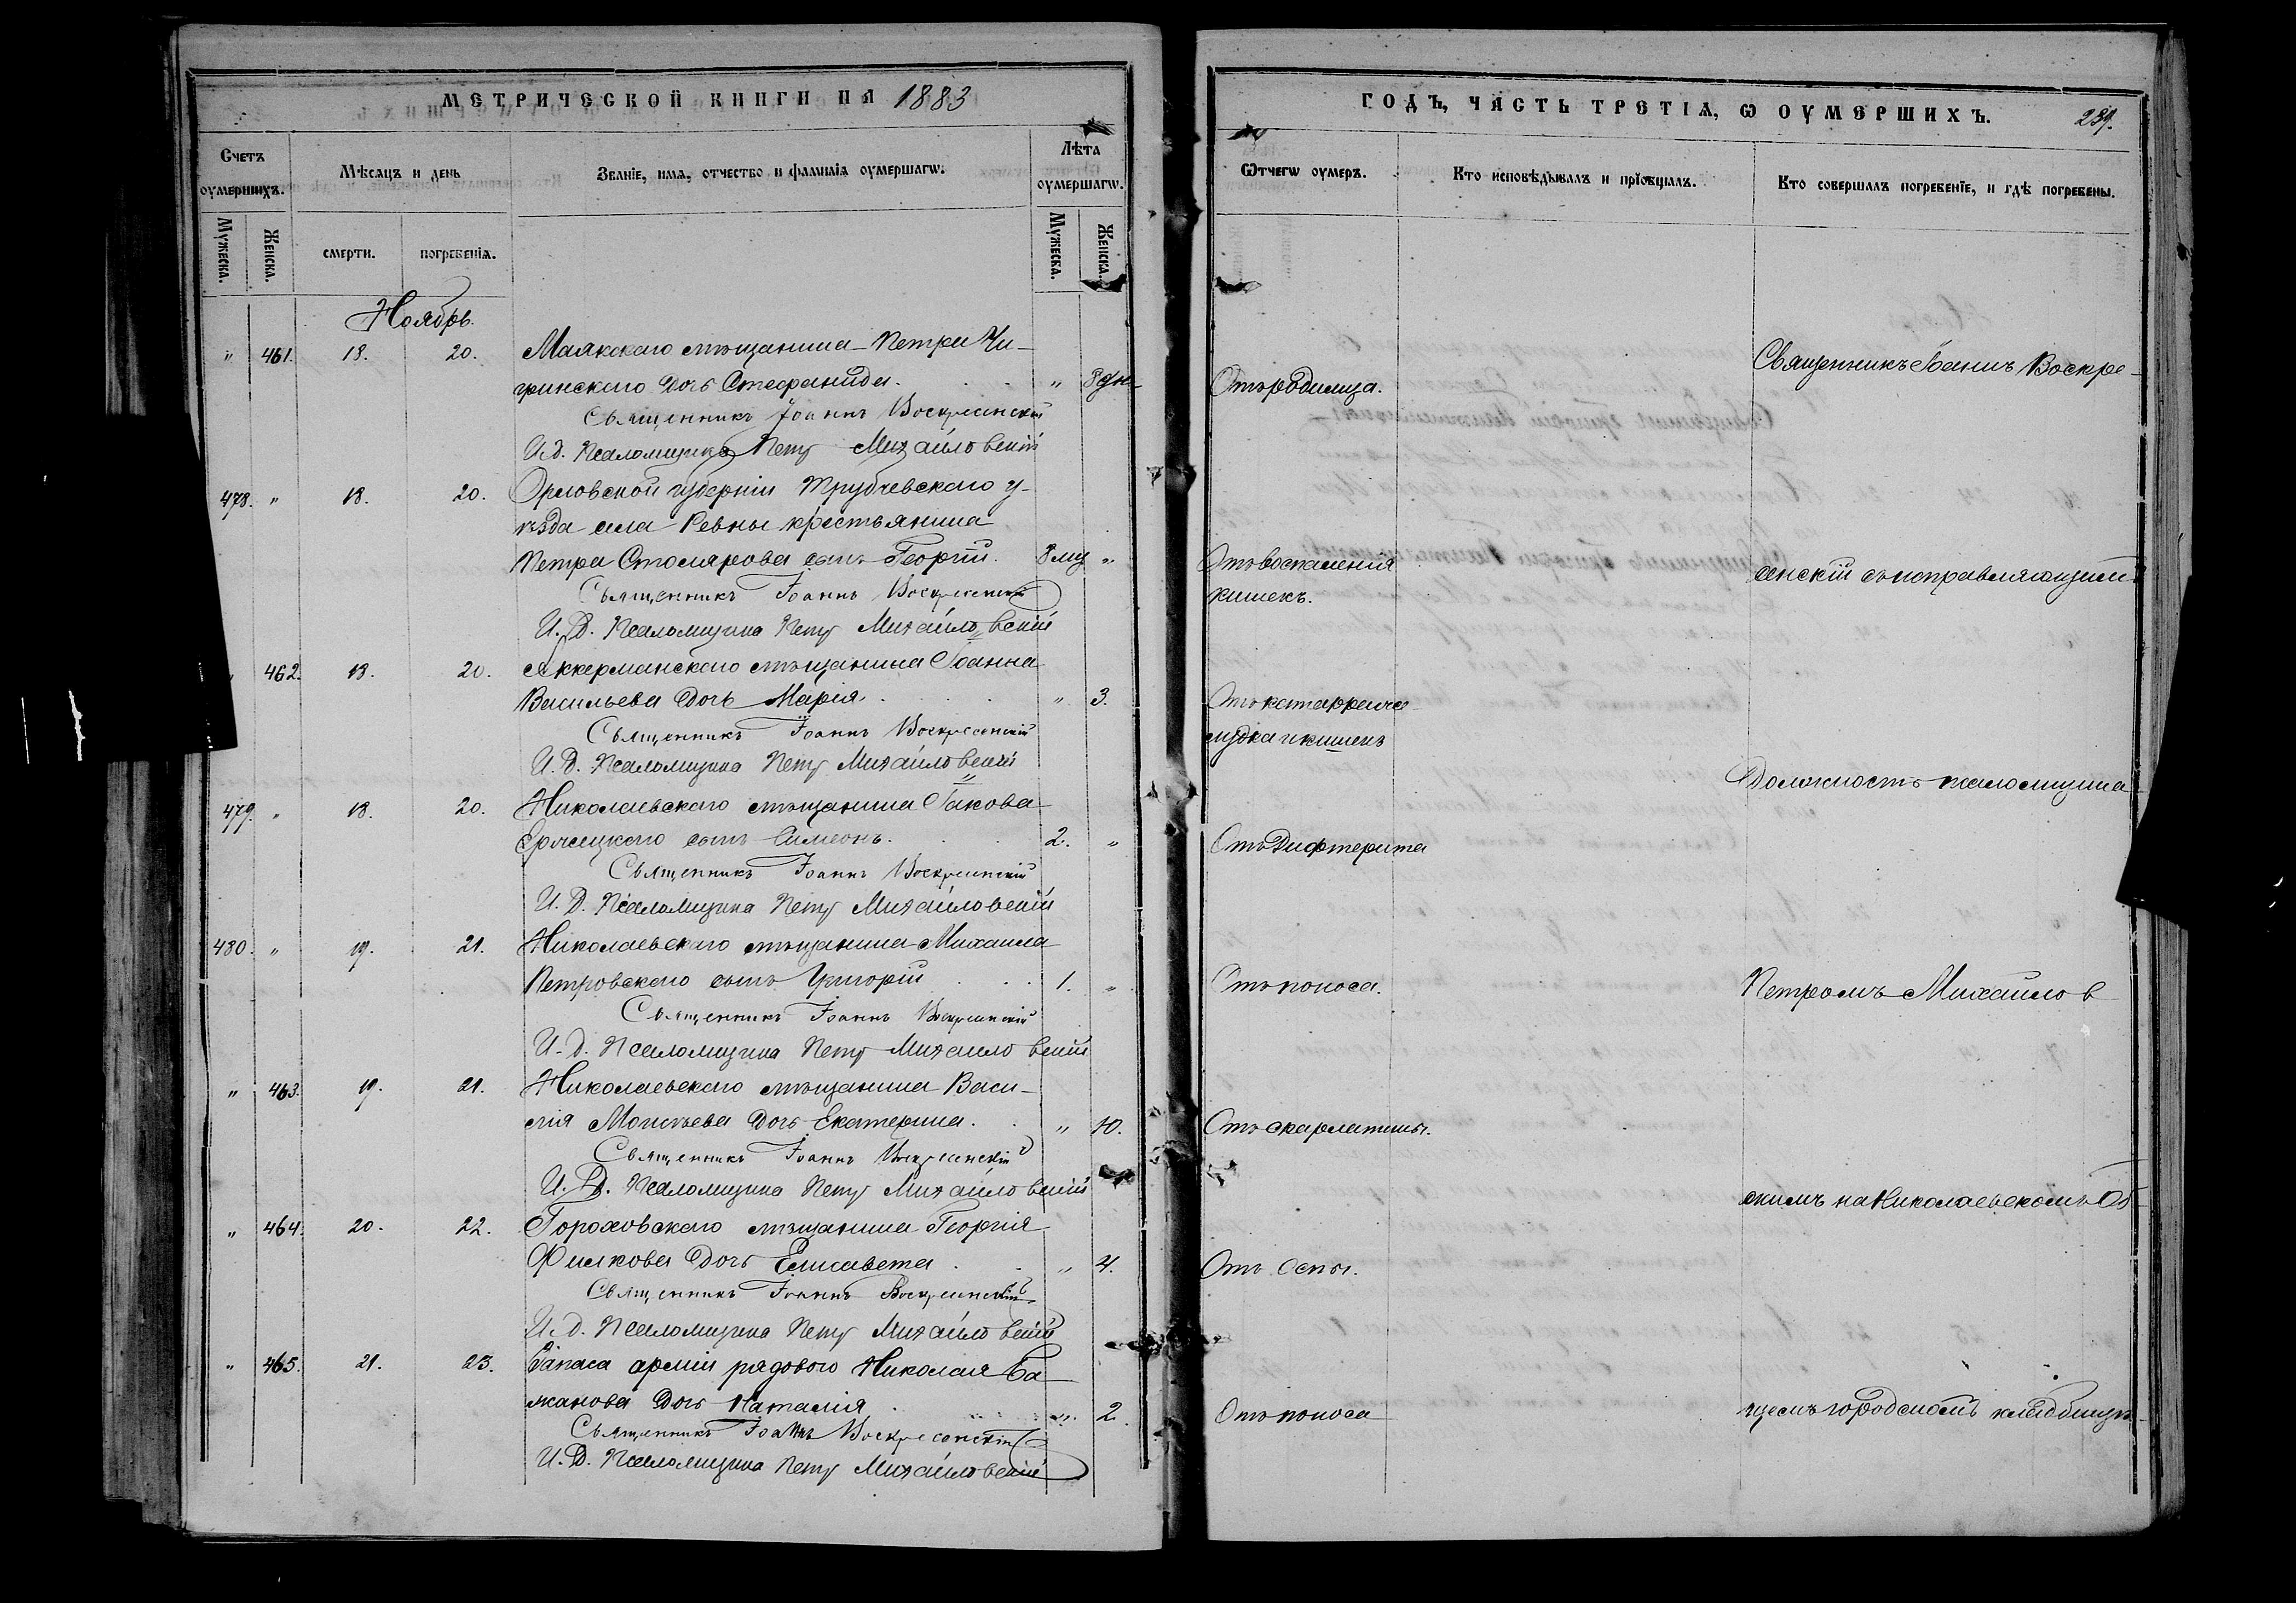 МЕТРИЧЕСКОЙ КНИГИ НА 1883
Счетъ оумершихъ.
Мѣсяцъ и день
Званіе, имя, отчество и фамилія оумершагѡ.
Лѣта оумершагѡ.
Мужеска.
Женска.
смерти.
погребенія.
Мужеска.
Женска.
Ноябрь.
" 461. 18. 20. Маякскаго мѣщанина Петра Чи-
гринскаго дочь Стефанида. " 8 дн.
Священникъ Іоаннъ Воскресенскій
И.д. Псаломщика Петр Михайловскій
478. " 18. 20. Орловской губерніи Трубчевскаго у-
ѣзда села Ревны крестьянина
Петра Столярова сынъ Георгій. 8 мц "
Священникъ Іоаннъ Воскресенскій
И. Д. Псаломщика Петр Михайловскій
" 462. 18. 20. Аккерманскаго мѣщанина Іоанна
Васильева дочь Марія. " 3.
Священникъ Іоаннъ Воскресенскій
И. Д. Псаломщика Петр Михайловскій
479. " 18. 20. Николаевскаго мѣщанина Іакова
сынъ Симеонъ. 2. "
Священникъ Іоаннъ Воскресенскій
И. Д. Псаломщика Петр Михайловскій
480. " 19. 21. Николаевскаго мѣщанина Михаила
Петровскаго сынъ Григорій 1. "
Священникъ Іоаннъ Воскресенскій
И. д. Псаломщика Петр Михайловскій
" 463. 19. 21. Николаевскаго мѣщанина Васи-
лія Моисѣева дочь Екатерина. " 10.
Священникъ Іоаннъ Воскресенскій
И. Д. Псаломщика Петр Михайловскій
" 464. 20. 22. Гороховскаго мѣщанина Георгія
Филкова дочь Елисавета " 4.
Священникъ Іоаннъ Воскресенскій
И. д. Псаломщика Петр Михайловскій
" 465. 21. 23. Запаса арміи рядового Николая Ба-
жанова дочь Наталія " 2.
Священникъ Іоаннъ Воскресенскій
И. Д. Псаломщика Петр Михайловскій
ГОДЪ, ЧАСТЬ ТРЕТІЯ, Ѡ ОУМЕРШИХЪ. 239.
Ѿчегѡ оумеръ.
Кто исповѣдывалъ и прїобщалъ.
Кто совершалъ погребенїе, и гдѣ погребены.
Священникъ Іоаннъ Воскре-
Отъ родимца.
Отъ воспаленія
кишекъ.
сенскій съ исправляющимъ
Отъ катарра же-
лудка и кишекъ
Должность псаломщика
Отъ Дифтерита
Отъ поноса.
Петромъ Михайлов-
Отъ скарлатины.
скимъ на Николаевскомъ Об-
Отъ Оспы.
Отъ поноса
щемъ городскомъ кладбищѣ.